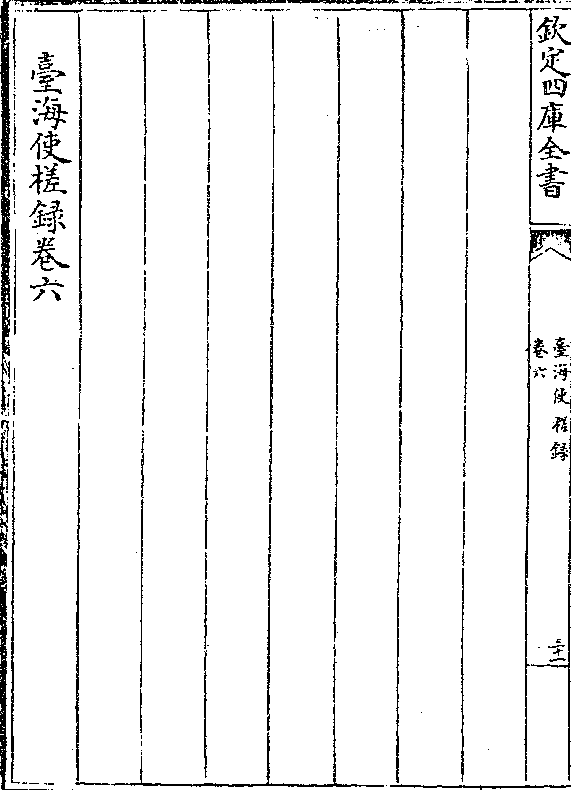 欽定四庫全書
臺海使槎録
卷六
三十一
臺海使槎録卷六